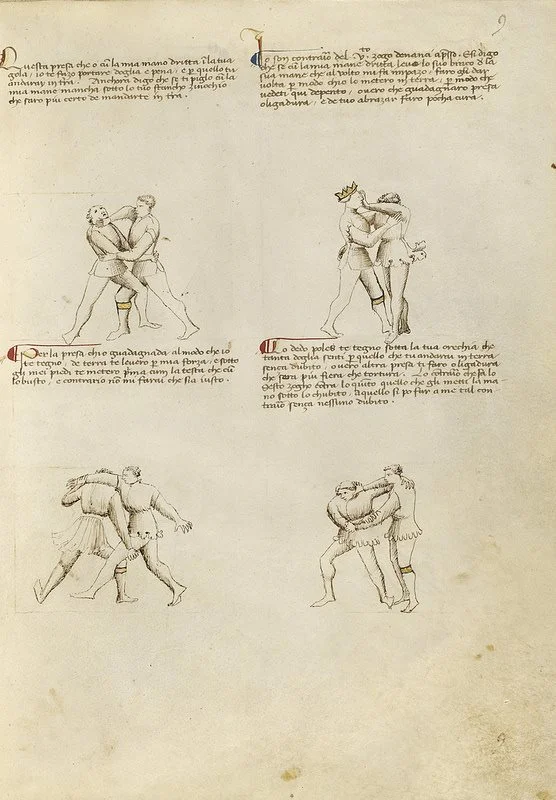 9
Questa presa che o cu la mia mano dritta i la tua
gola, io te fazo portare doglia e pena, e p quello tu
andaray in tra. Anchora digo che se ti piglo cu la
mia mano mancha sotto lo tuo stancho zinochio
che saro piu certo de mandarte in tra.
Io son contrario del .v. zogo denanzi apsso. E si digo
che se cu la mia mane dritta levo lo suo brazo de la
sua mane che al volto mi fa impazo, faro gli dar
volta p modo chio lo metero in terra, p modo che
vedeti qui depento, overo che guadagnaro presa
o ligadura, e de tuo abrazar faro pocha cura.
Per la presa chio guadagnada al modo che io
te tegno, de terra te levero p mia forza, e sotto
gli miei piedi te metero prima cum la testa che cu
lo busto, e contrario no mi farai che sia iusto.
Lo dedo poles te tegno sotta la tua orechia che
tanta doglia senti p quello che tu andarai in terra
senza dubito, overo altra presa ti faro o ligadura
che sera piu fiera che tortura. Lo contrario che fa lo
sesto zogho contra lo quito quello che gli mette la ma
no sotto lo chubito, aquello si po far a me tal con
trario senza nessuno dubito.